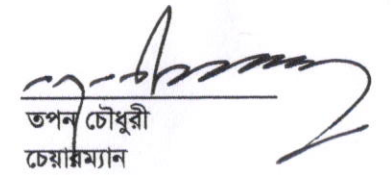 তপন চৌধুরী
চেয়ারম্যান